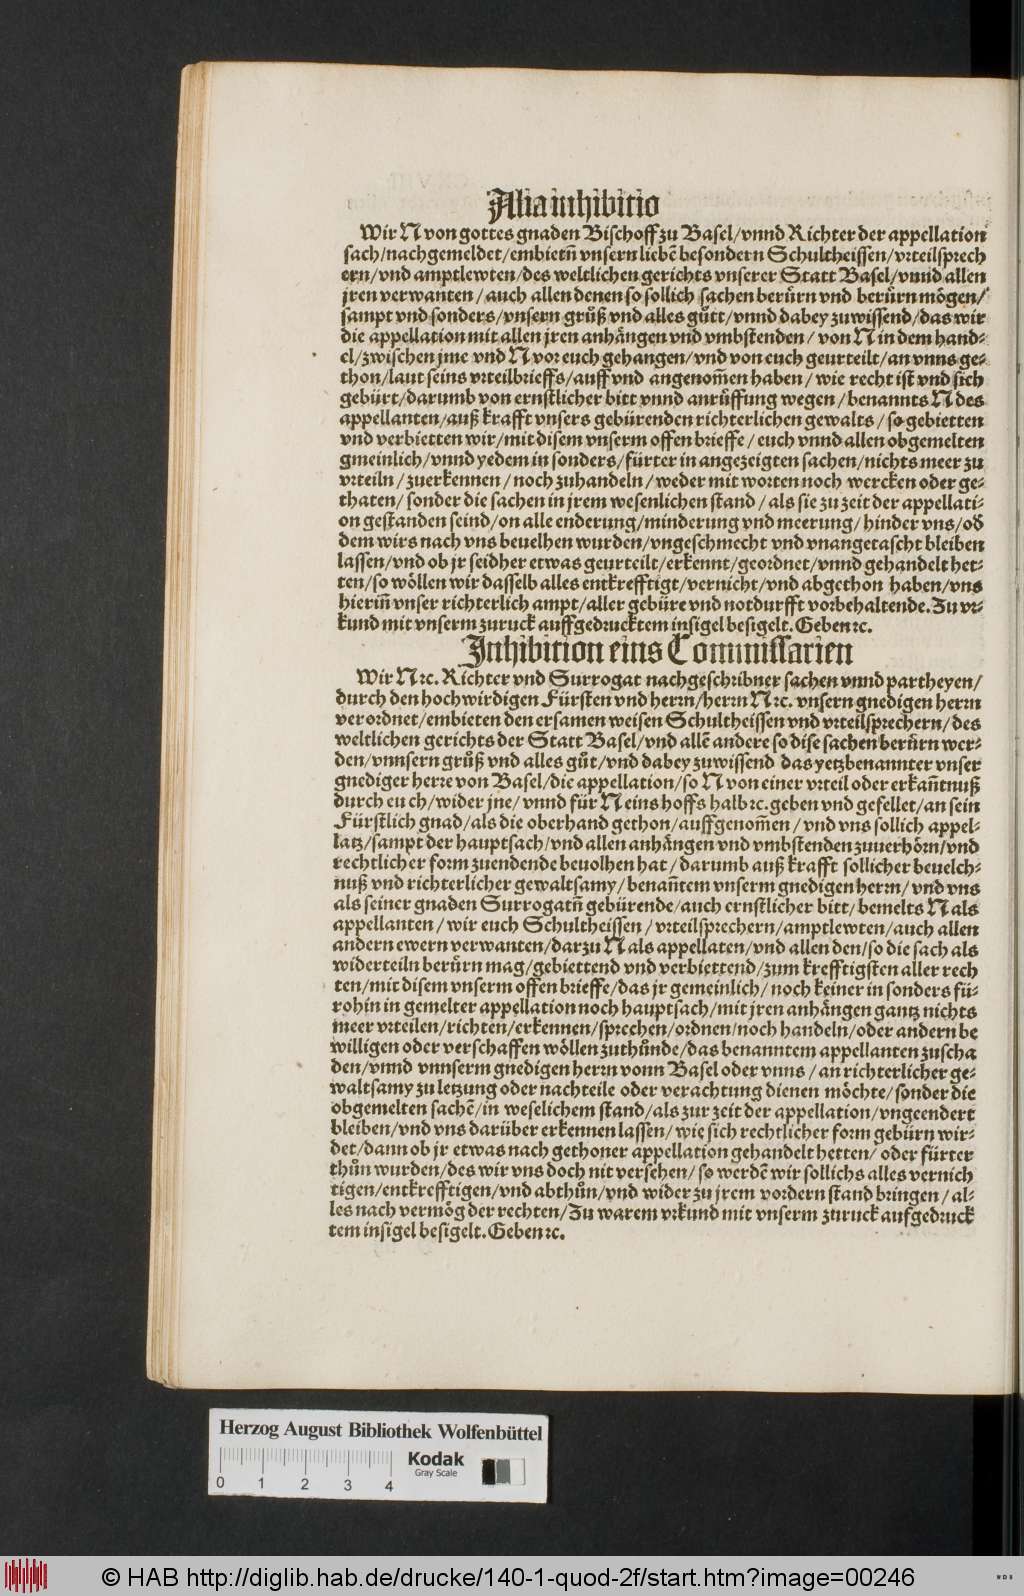 Alia inhibitio
Wir N von gottes gnaden Bischoff zu Basel/vnnd Richter der appellation
sach/nachgemeldet/embietñ vnsern liebẽ besondern Schultheissen/vrteilsprech
ern/vnd amptlewten/des weltlichen gerichts vnserer Statt Basel/vnnd allen
jren verwanten/auch allen denen so sollich sachen berůrn vnd berůrn mögen/
sampt vnd sonders/vnsern grůß vnd alles gůtt/vnnd dabey zuwissend/das wir
die appellation mit allen jren anhängen vnd vmbstenden/ von N in dem hand⸗
el/zwischen jme vnd N vor euch gehangen/vnd von euch geurteilt/an vnns ge⸗
thon/laut seins vrteilbrieffs/auff vnd angenom̃en haben/ wie recht ist vnd sich
gebürt/darumb von ernstlicher bitt vnnd anrůffung wegen/benannts N des
appellanten/auß krafft vnsers gebürenden richterlichen gewalts/so gebietten
vnd verbietten wir/mit disem vnserm offen brieffe/euch vnnd allen obgemelten
gmeinlich/vnnd yedem in sonders/fürter in angezeigten sachen/nichts meer zu
vrteiln/zuerkennen/noch zuhandeln/weder mit worten noch wercken oder ge⸗
thaten/sonder die sachen in jrem wesenlichen stand/als sie zu zeit der appellati⸗
on gestanden seind/on alle enderung/minderung vnd meerung/hinder vns/od
dem wirs nach vns beuelhen wurden/vngeschmecht vnd vnangetascht bleiben
lassen/vnd ob jr seidher etwas geurteilt/erkennt/geordnet/vnnd gehandelt het⸗
ten/so wöllen wir dasselb alles entkrefftigt/vernicht/vnd abgethon haben/vns
hieriñ vnser richterlich ampt/aller gebüre vnd notdurfft vorbehaltende. Zu vr⸗
kund mit vnserm zuruck auffgedrucktem insigel besigelt. Geben ꝛc.
Inhibition eins Commissarien
Wir N ꝛc. Richter vnd Surrogat nachgeschribner sachen vnnd partheyen/
durch den hochwirdigen Fürsten vnd herrn/herrn N ꝛc. vnsern gnedigen herrn
verordnet/embieten den ersamen weisen Schultheissen vnd vrteilsprechern/des
weltlichen gerichts der Statt Basel/vnd allẽ andere so dise sachen berůrn wer⸗
den/vnnsern grůß vnd alles gůt/vnd dabey zuwissend das yetzbenannter vnser
gnediger herre von Basel/die appellation/so N von einer vrteil oder erkañtnuß
durch eu ch/wider jne/ vnnd für N eins hoffs halb ꝛc. geben vnd gefellet/an sein
Fürstlich gnad/als die oberhand gethon/auffgenom̃en/vnd vns sollich appel⸗
latz/sampt der hauptsach/vnd allen anhängen vnd vmbstenden zuuerhörn/vnd
rechtlicher form zuendende beuolhen hat/darumb auß krafft sollicher beuelch⸗
nuß vnd richterlicher gewaltsamy/benañtem vnserm gnedigen herrn/vnd vns
als seiner gnaden Surrogatñ gebürende/auch ernstlicher bitt/bemelts N als
appellanten/wir euch Schultheissen/vrteilsprechern/amptlewten/auch allen
andern ewern verwanten/darzu N als appellaten/vnd allen den/so die sach als
widerteiln berůrn mag/gebiettend vnd verbiettend/zum krefftigsten aller rech
ten/mit disem vnserm offen brieffe/das jr gemeinlich/noch keiner in sonders fü⸗
rohin in gemelter appellation noch hauptsach/mit jren anhängen gantz nichts
meer vrteilen/richten/erkennen/sprechen/ordnen/noch handeln/oder andern be
willigen oder verschaffen wöllen zuthůnde/das benanntem appellanten zuscha
den/vnnd vnnserm gnedigen herrn vonn Basel oder vnns/an richterlicher ge⸗
waltsamy zu letzung oder nachteile oder verachtung dienen möchte/sonder die
obgemelten sachẽ/in weselichem stand/als zur zeit der appellation/vngeendert
bleiben/vnd vns darüber erkennen lassen/wie sich rechtlicher form gebürn wir⸗
det/dann ob jr etwas nach gethoner appellation gehandelt hetten/oder fürter
thůn wurden/des wir vns doch nit versehen/so werdẽ wir sollichs alles vernich
tigen/entkrefftigen/vnd abthůn/vnd wider zu jrem vordern stand bringen/al⸗
les nach vermög der rechten/Zu warem vrkund mit vnserm zuruck aufgedruck
tem insigel besigelt. Geben ꝛc.
Herzog August Bibliothek Wolfenbüttel
Kodak
Gray Scale
0 1 2 3 4
© HAB http://diglib.hab.de/drucke/140-1-quod-2f/start.htm?image=00246